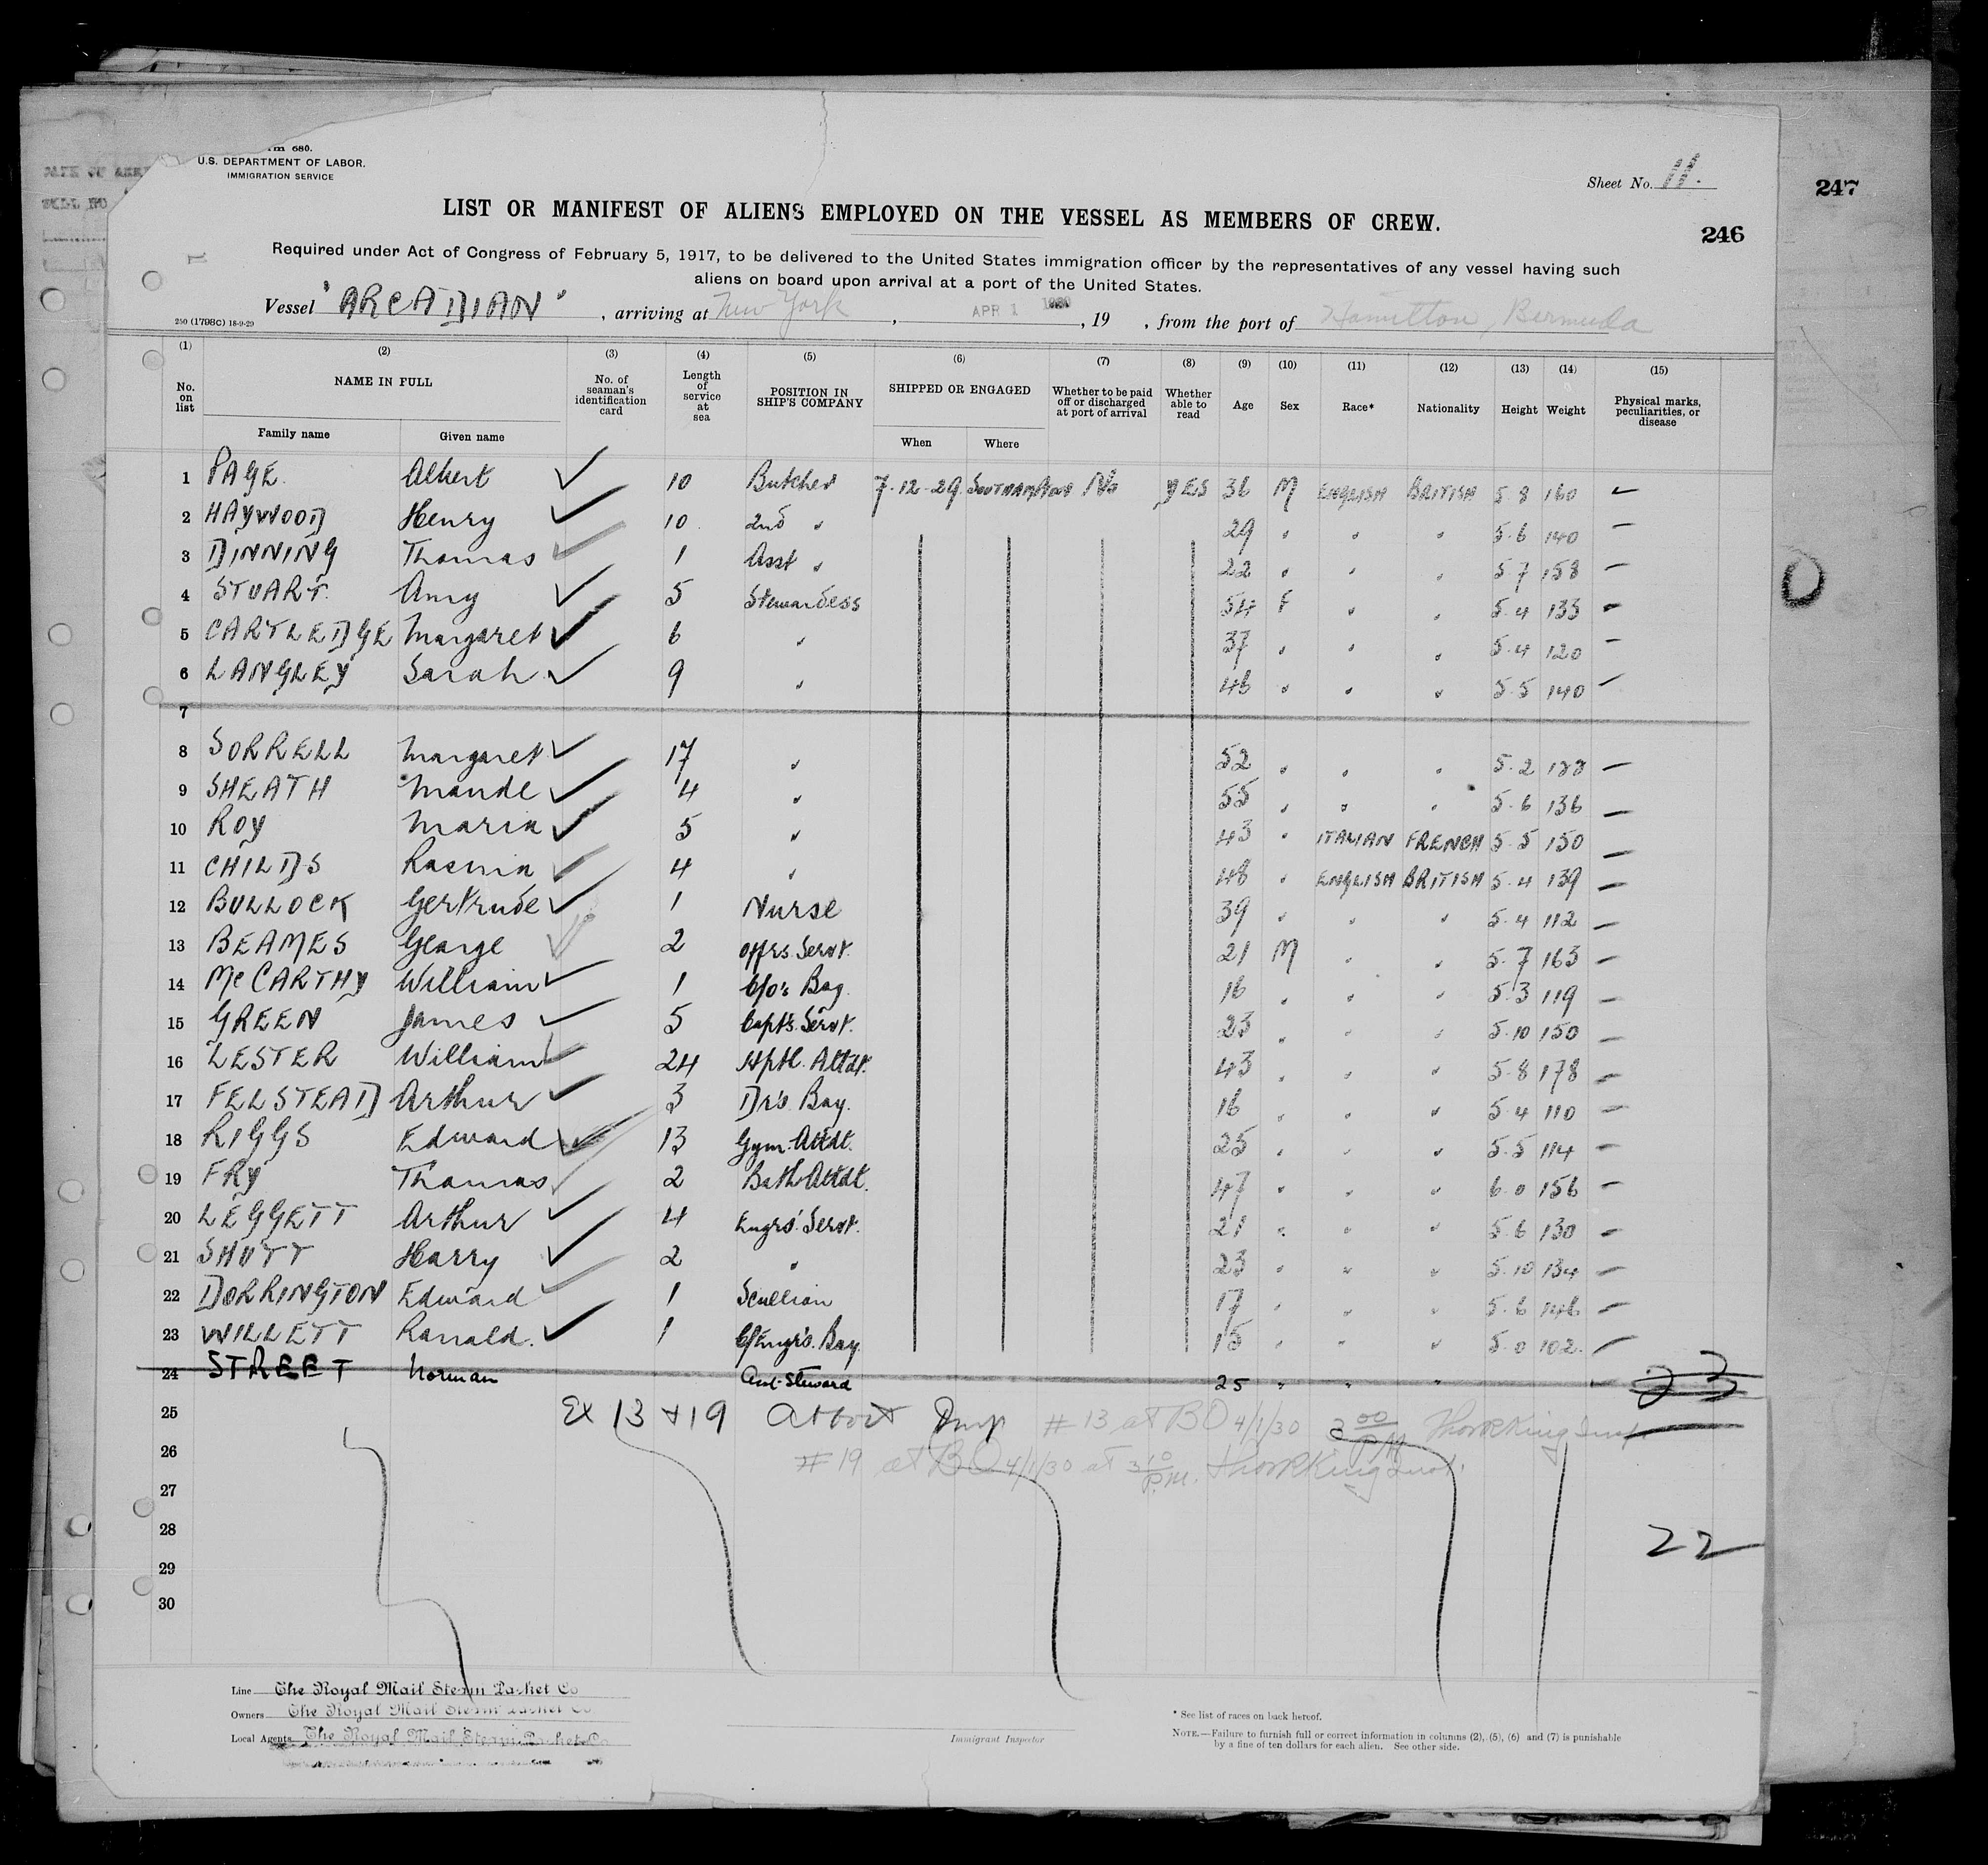 rm 680.
U.S. DEPARTMENT OF LABOR.
IMMIGRATION SERVICE
Sheet No. 11.
247
LIST OR MANIFEST OF ALIENS EMPLOYED ON THE VESSEL AS MEMBERS OF CREW.
246
Required under Act of Congress of February 5, 1917, to be delivered to the United States immigration officer by the representatives of any vessel having such
aliens on board upon arrival at a port of the United States.
Vessel "ARCADIAN", arriving at New York, APR 1 1930, 19 , from the port of Hamilton, Bermuda
250 (1798C) 18-9-29
(1) (2) (3) (4) (5) (6) (7) (8) (9) (10) (11) (12) (13) (14) (15)
No. on list NAME IN FULL No. of seaman's identification card Length of service at sea POSITION IN SHIP'S COMPANY SHIPPED OR ENGAGED Whether to be paid off or discharged at port of arrival Whether able to read Age Sex Race* Nationality Height Weight Physical marks, peculiarities, or disease
Family name Given name When Where
1 PAGE Albert ✓ 10 Butcher 7-12-29 SOUTHAMPTON No YES 36 M ENGLISH BRITISH 5 8 160 —
2 HAYWOOD Henry ✓ 10 2nd " 29 " " " 5.6 140 —
3 DINNING Thomas ✓ 1 Asst " 22 " " " 5 7 158 —
4 STUART Amy ✓ 5 Stewardess 54 F " " 5.4 133 —
5 CARTLEDGE Margaret ✓ 6 " 37 " " " 5.4 120 —
6 LANGLEY Sarah ✓ 9 " 46 " " " 5.5 140 —
7
8 SORRELL Margaret ✓ 17 " 52 " " " 5.2 —
9 SHEATH Maude ✓ 4 " 55 " " " 5.6 136 —
10 ROY Maria ✓ 5 " 43 " ITALIAN FRENCH 5 5 150 —
11 CHILDS ✓ 4 " 48 " ENGLISH BRITISH 5.4 139 —
12 BULLOCK Gertrude ✓ 1 Nurse 39 " " " 5.4 112 —
13 BEAMES George ✓ 2 Offrs. Servt. 21 M " " 5.7 163 —
14 McCARTHY William ✓ 1 C/o's Boy. 16 " " " 5.3 119 —
15 GREEN James ✓ 5 Capt's. Servt. 23 " " " 5.10 150 —
16 LESTER William ✓ 24 Hptl. Attdt. 43 " " " 5.8 178 —
17 FELSTEAD Arthur ✓ 3 Dr's. Boy. 16 " " " 5 4 110 —
18 RIGGS Edward ✓ 13 Gym. Attdt. 25 " " " 5.5 114 —
19 FRY Thomas ✓ 2 Bath Attdt. 47 " " " 6.0 156 —
20 LEGGETT Arthur ✓ 4 Engrs' Servt. 21 " " " 5 6 130 —
21 SHUTT Harry ✓ 2 " 23 " " " 5.10 134 —
22 DORRINGTON Edward ✓ 1 Scullion 17 " " " 5.6 146 —
23 WILLETT Ronald. ✓ 1 C/Engr's. Boy. 15 " " " 5.0 102. —
24 STREET Norman Asst. Steward 25 " " " — 23
25 Ex 13 + 19 # 13 at BO 4/1/30 3 00 PM
26 # 19 at BO 4/1/30 at 3 10 P.M.
27
28
29 22
30
Line The Royal Mail Steam Packet Co
Owners The Royal Mail Steam Packet Co
Local Agents The Royal Mail Steam Packet Co
Immigrant Inspector
* See list of races on back hereof.
NOTE.—Failure to furnish full or correct information in columns (2), (5), (6) and (7) is punishable
by a fine of ten dollars for each alien. See other side.